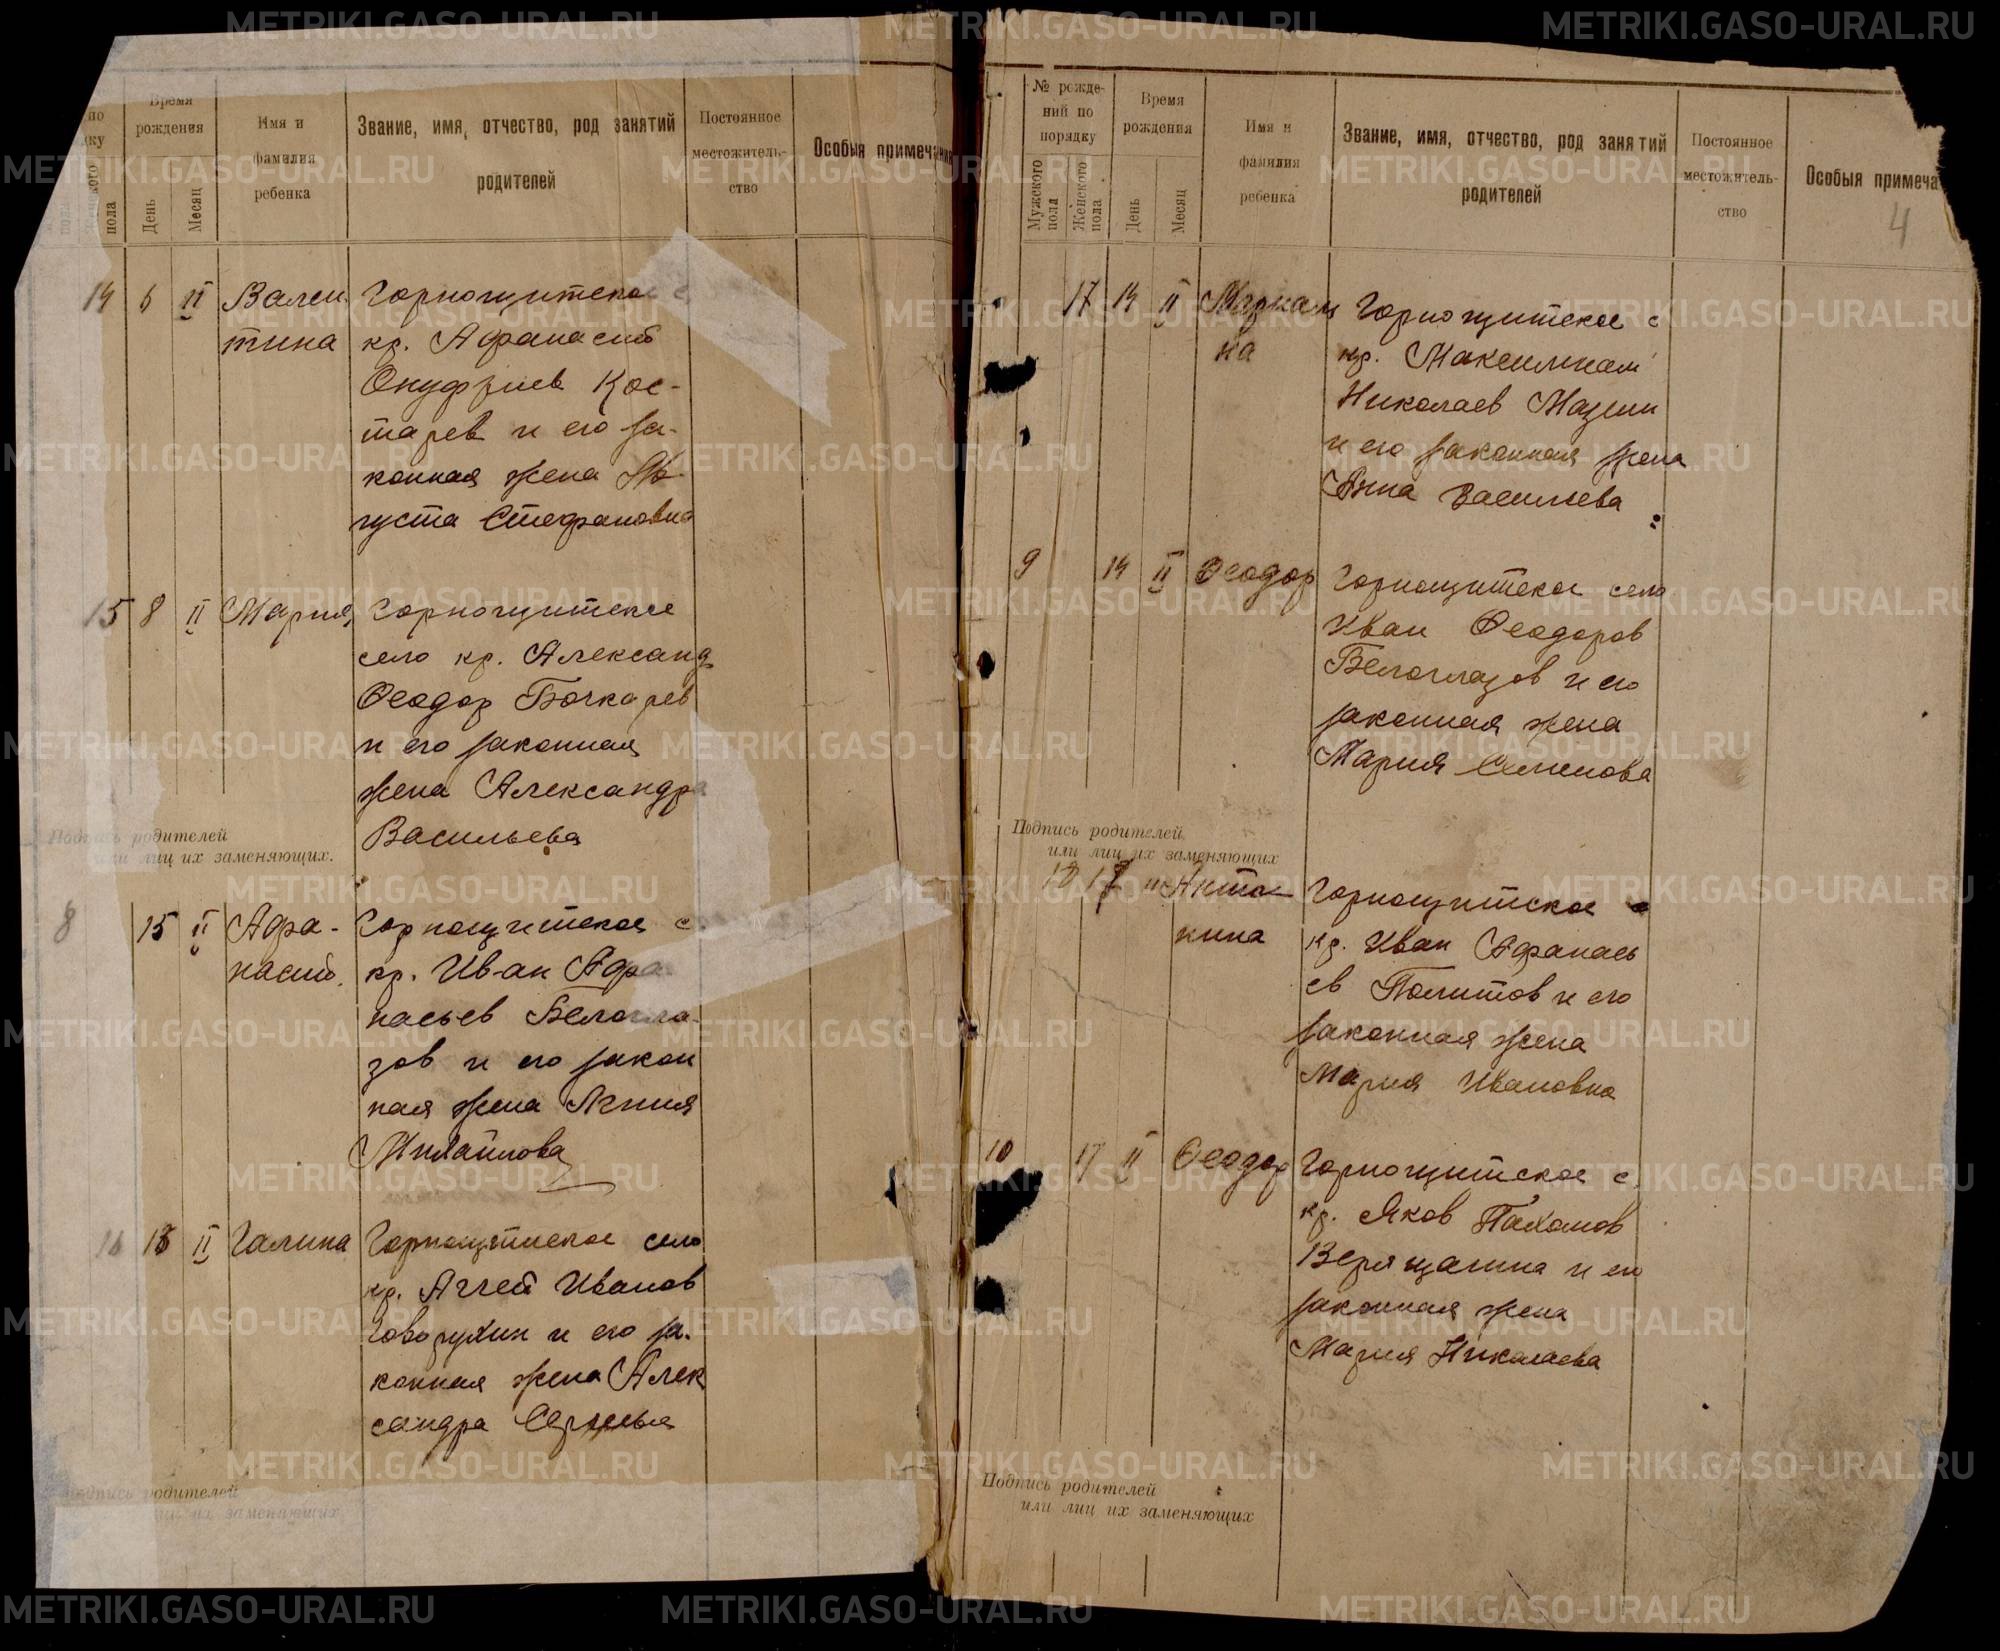 METRIKI.GASO-URAL.RU
по
дку
Время
рождения
Имя и
фамилия
ребенка
Звание, имя, отчество, род занятий
родителей
Постоянное
местожитель-
ство
Особыя примечания
женского
пола
День
Месяц
14 6 II Вален
тина
Горнощитское с.
кр. Афанасий
Онуфриев Кос-
тарев и его за-
конная жена Ав
густа Стефановна
15 8 II Мария
Горнощитское
село кр. Александ
Феодор Бочкарев
и его законная
жена Александра
Васильева
Подпись родителей
или лиц их заменяющих.
8 15 II Афа-
насий.
Горнощитское с.
кр. Иван Афа
насьев Белогла-
зов и его закон
ная жена Агния
Михайлова
16 18 II Галина
Горнощитское село
кр. Аггей Иванов
Говорухин и его за-
конная жена Алек
сандра Сергеевна
Подпись родителей
или лиц их заменяющих
№ рожде-
ний по
порядку
Мужского
пола
Женского
пола
Время
рождения
День
Месяц
Имя и
фамилия
ребенка
Звание, имя, отчество, род занятий
родителей
Постоянное
местожитель-
ство
Особыя примеча
4
17 14 II Мариам
на
Горнощитское с
кр. Максимилиан
Николаев Мазин
и его законная жена
Анна Васильева
9 14 II Феодор
Горнощитское село
Иван Феодоров
Белоглазов и его
законная жена
Мария Семенова
Подпись родителей
или лиц их заменяющих
18 17 II Анто-
нина
Горнощитское с
кр. Иван Афанась
ев Политов и его
законная жена
Мария Ивановна
10 17 II Феодор
Горнощитское с.
кр. Яков Пахомов
Верящагина и его
законная жена
Мария Николаева
Подпись родителей
или лиц их заменяющих